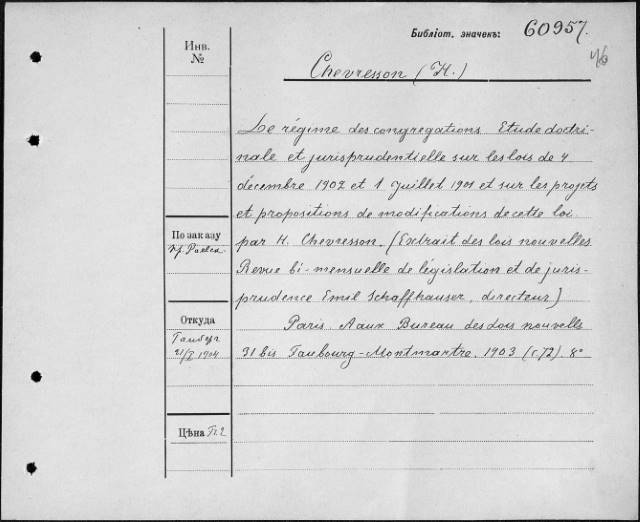 Библіот. значекъ: 60957.
Инв.
№
Chevresson (H.)
Le régime des congregations. Etude doctri-
nale et jurisprudentielle sur les lois de 4
décembre 1902 et 1 Juillet 1901 et sur les projets
et propositions de modifications de cette loi
par H. Chevresson. (Extrait des lois nouvelles
Revue bi-mensuelle de législation et de juris-
prudence Emil Schaffhauser, directeur)
Paris. Aaux Bureau des dois nouvells
31 bis Faubourg-Montmartre. 1903 (с. 72). 8°
По заказу
Откуда
1904
Цѣна